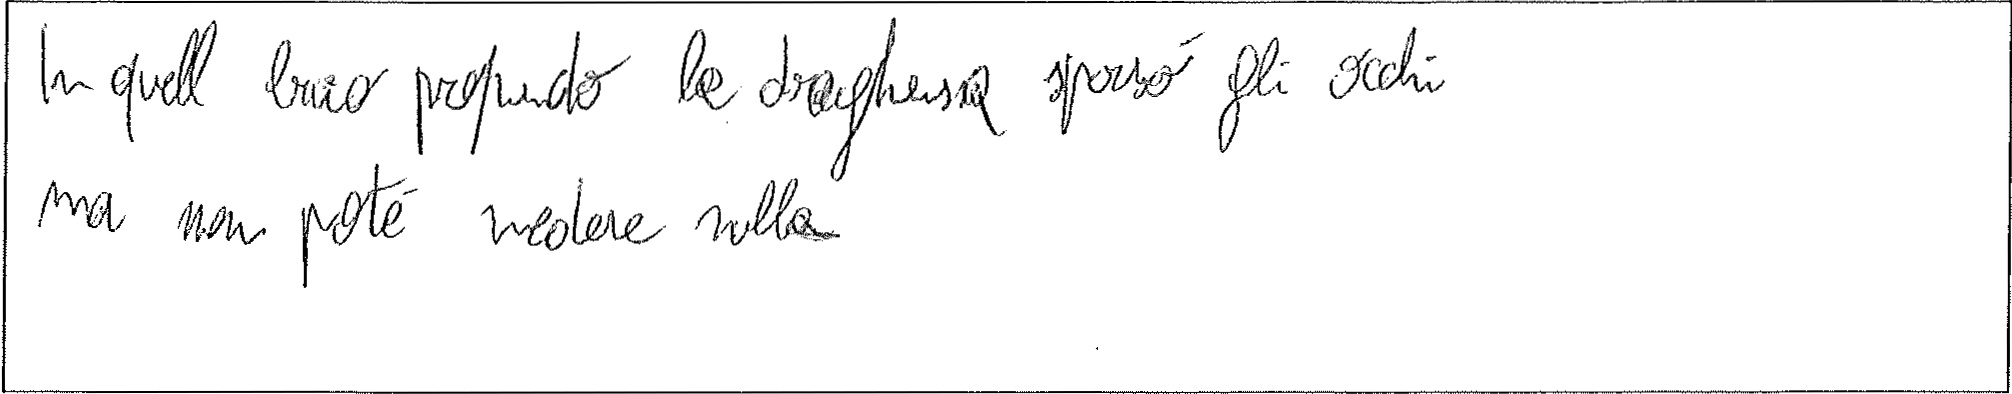 In quell buio profondo la draghessa sporsó gli occhi
ma non poté vedere nulla